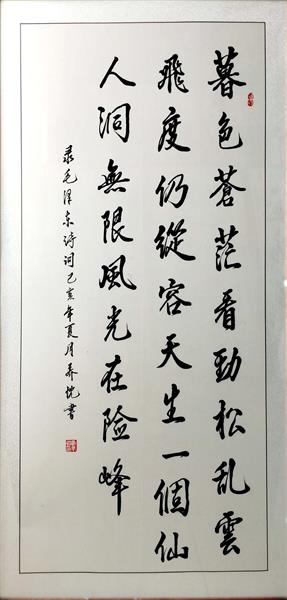 暮色蒼茫看勁松乱雲
飛度仍從容天生一個仙
人洞無限風光在险峰
录毛泽东诗词己亥年夏月 書